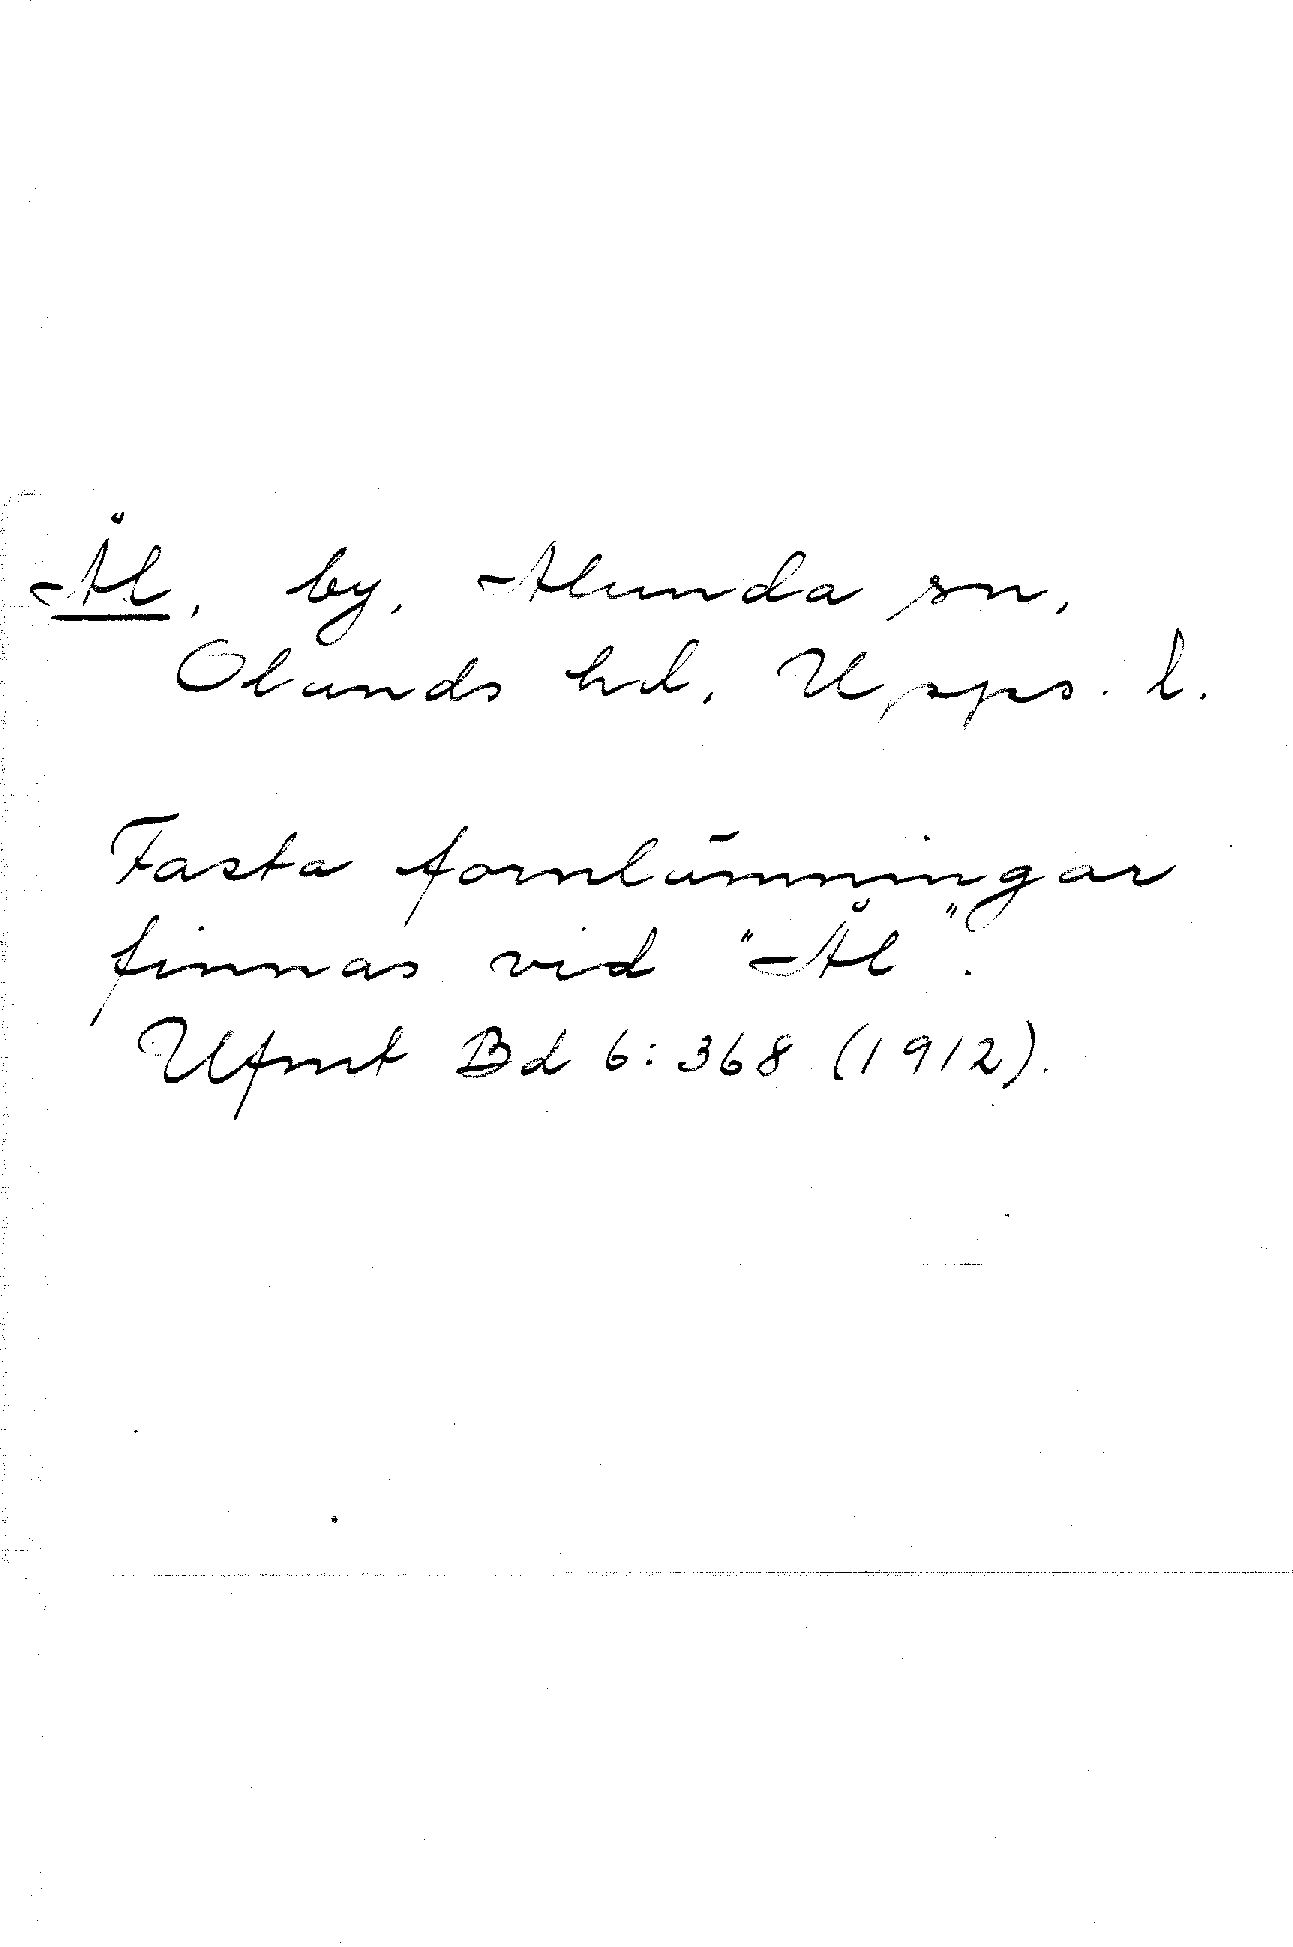 Ål, by, Alunda sn,
Olands hd, Upps. l.
Fasta fornlämningar
finnas vid "Ål".
Ufmt Bd 6:368 (1912).